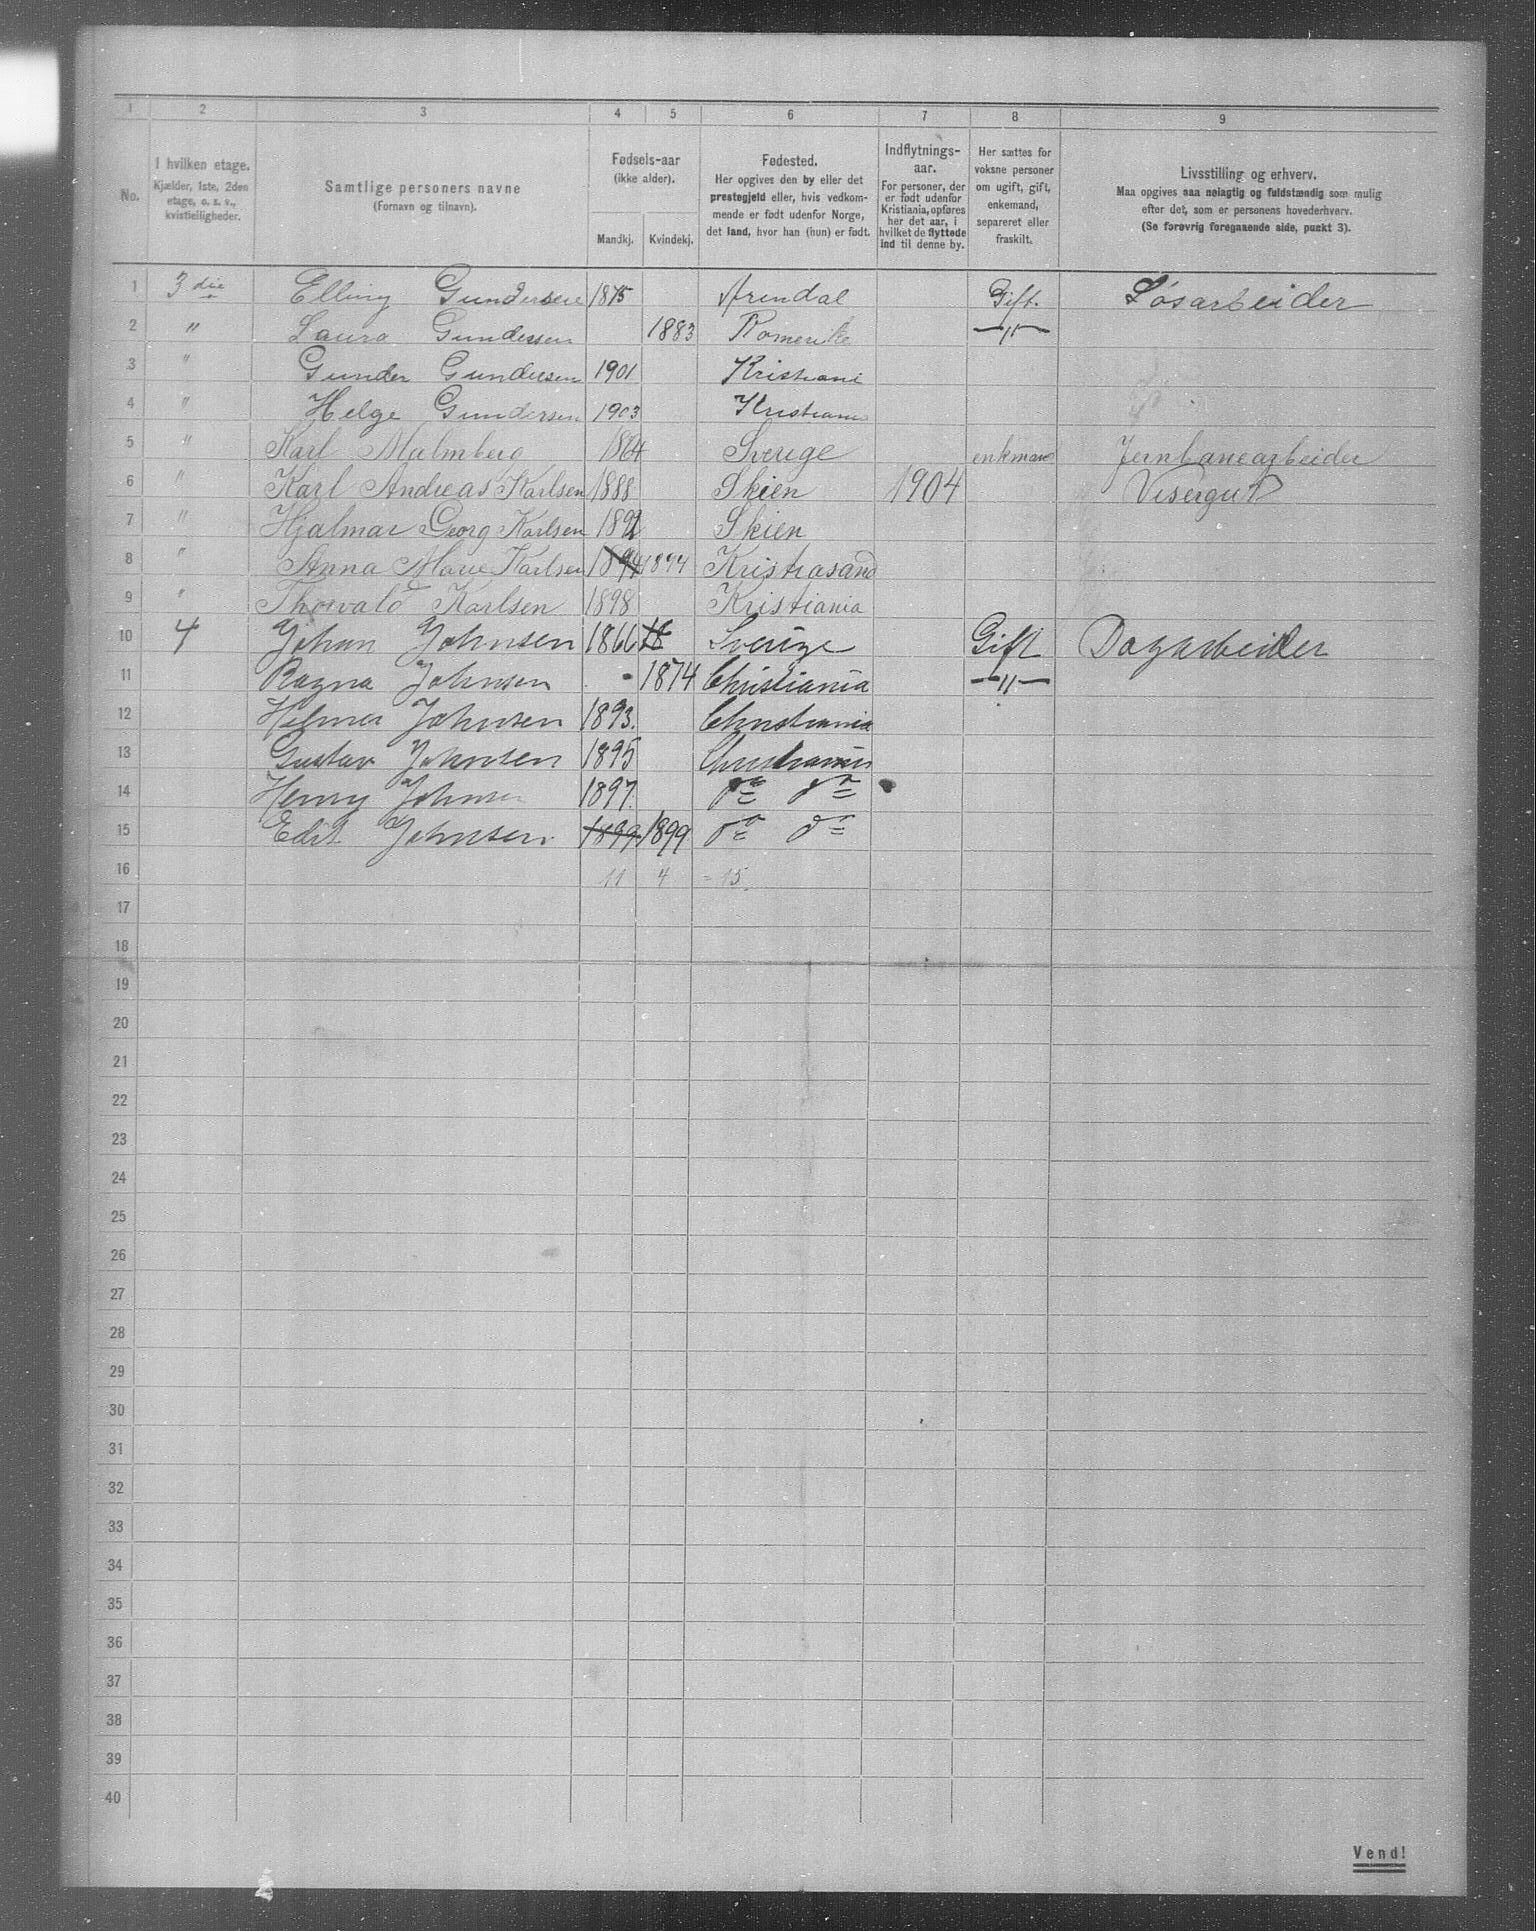 1 2 3 4 5 6 7 8 9
No.
I hvilken etage.
Kjælder, 1ste, 2den
etage, o. s. v.,
kvistleiligheder.
Samtlige personers navne
(Fornavn og tilnavn).
Fødsels-aar
(ikke alder).
Mandkj. Kvindekj.
Fødested.
Her opgives den by eller det
prestegjeld eller, hvis vedkom-
mende er født udenfor Norge,
det land, hvor han (hun) er født.
Indflytnings-
aar.
For personer, der
er født udenfor
Kristiania, opføres
her det aar, i
hvilket de flyttede
ind til denne by.
Her sættes for
voksne personer
om ugift, gift,
enkemand,
separeret eller
fraskilt.
Livsstilling og erhverv.
Maa opgives saa nøiagtig og fuldstændig som mulig
efter det, som er personens hovederhverv.
(Se forøvrig foregaaende side, punkt 3).
1 3 die Elling Gundersen 1875 Arendal Gift. Løsarbeider
2 " Laura Gundersen 1883 Romerike —"—
3 " Gunder Gundersen 1901 Kristiani
4 " Helge Gundersen 1903 Kristiania
5 " Karl Malmberg 1864 Sverige enkmand Jernbanearbeider
6 " Karl Andreas Karlsen 1888 Skien 1904 Visergut
7 " Hjalmar Georg Karlsen 1892 Skien
8 " Anna Marie Karlsen 1894 1894 Kristiasand
9 " Thorvald Karlsen 1898 Kristiania
10 4 Johan Johnsen 1866 18 Sverige Gift Dagarbeider
11 Ragna Johnsen 1874 Christiania —"—
12 Hilmar Johnsen 1893. Christiania
13 Gustav Johnsen 1895 Christiania
14 Henry Johnsen 1897. do do
15 Edit Johnsen 1899 1899 do do
16 11 4 = 15.
17
18
19
20
21
22
23
24
25
26
27
28
29
30
31
32
33
34
35
36
37
38
39
40
Vend!